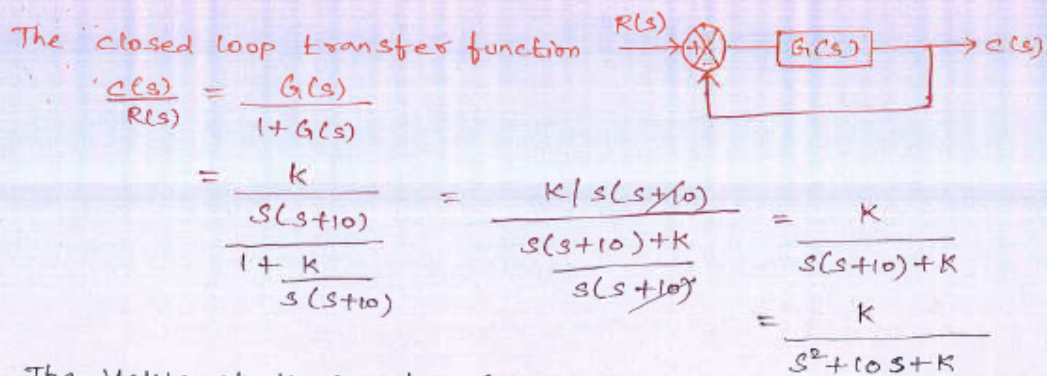 The closed loop transfer function R(s) + G(s) C(s)
C(s)/R(s) = G(s)/(1+G(s))
= (K/(s(s+10)))/(1+K/(s(s+10))) = (K/s(s+10))/((s(s+10)+K)/(s(s+10))) = K/(s(s+10)+K)
= K/(s²+10s+K)
The